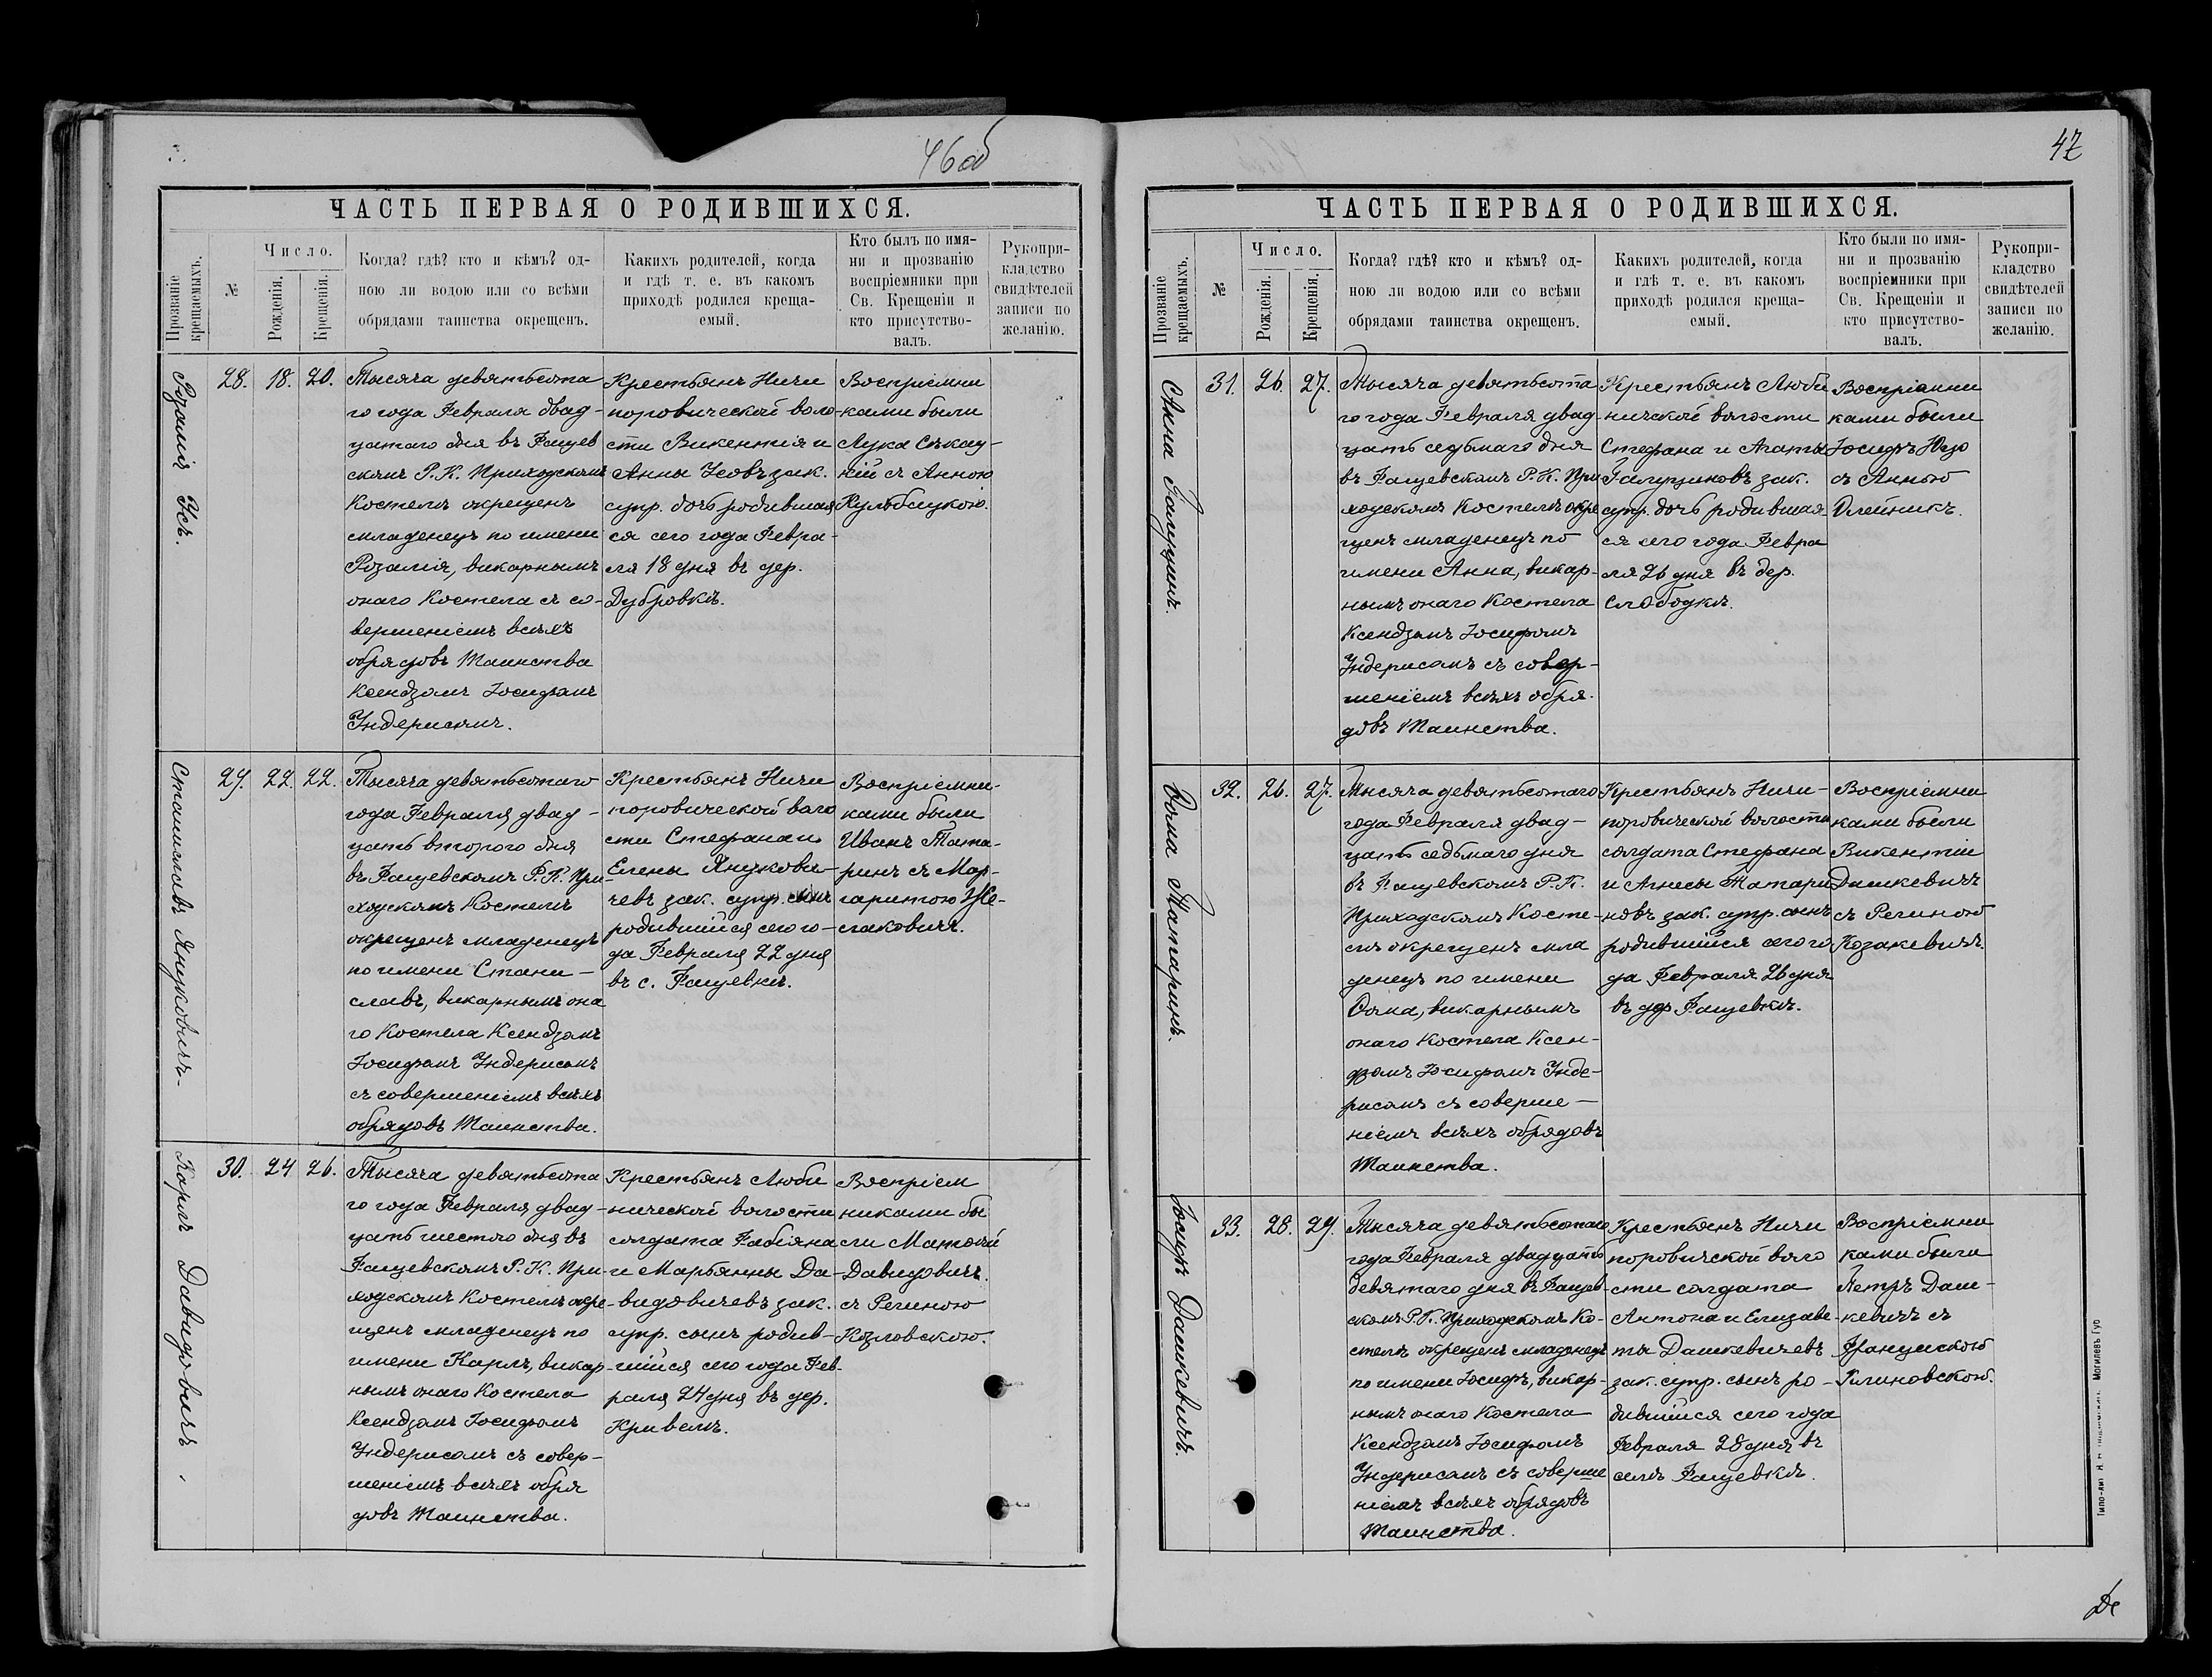 46об
ЧАСТЬ ПЕРВАЯ О РОДИВШИХСЯ.
Прозваніе крещаемыхъ.
№
Число.
Рожденія.
Крещенія.
Когда? гдѣ? кто и кѣмъ? од-
ною ли водою или со всѣми
обрядами таинства окрещенъ.
Какихъ родителей, когда
и гдѣ т. е. въ какомъ
приходѣ родился креща-
емый.
Кто былъ по имя-
ни и прозванію
воспріемники при
Св. Крещеніи и
кто присутство-
валъ.
Рукопри-
кладство
свидѣтелей
записи по
желанію.
Розалія Усъ.
28. 18. 20.
Тысяча девятьсота
го года Февраля двад-
цатаго дня въ Фащев
скомъ Р. К. Приходскомъ
Костелѣ окрещенъ
младенецъ по имени
Розалія, викарнымъ
онаго Костела съ со-
вершеніемъ всѣхъ
обрядовъ Таинства
Ксендзомъ Іосифомъ
Индерисомъ.
Крестьянъ Ничи
поровической воло-
сти Викентія и
Анны Усовъ зак.
супр. дочь родившая
ся сего года Февра-
ля 18 дня въ дер.
Дубровкѣ.
Воспріемни
ками были
Лука
съ Анною
Станиславъ Януковичъ-
29. 22. 22.
Тысяча девятьсотаго
года Февраля двад-
цать второго дня
въ Фащевскомъ Р. К. При-
ходскомъ Костелѣ
окрещенъ младенецъ
по имени Стани-
славъ, викарнымъ она
го Костела Ксендзомъ
Іосифомъ Индерисомъ
съ совершеніемъ всѣхъ
обрядовъ Таинства.
Крестьянъ Ничи
поровической воло
сти Стефана и
Елены Янукови-
чевъ зак. супр. сынъ
родившійся сего го-
да Февраля 22 дня
въ с. Фащевкѣ.
Воспріемни-
ками были
Иванъ Тата-
ринъ съ Мар-
гаритою
Карлъ Давидовичъ.
30. 24 26.
Тысяча девятьсота
го года Февраля двад-
цать шестого дня въ
Фащевскомъ Р. К. При-
ходскомъ Костелѣ окре-
щенъ младенецъ по
имени Карлъ, викар-
нымъ онаго Костела
Ксендзомъ Іосифомъ
Индерисомъ съ совер-
шеніемъ всѣхъ обря
довъ Таинства.
Крестьянъ Люби
нической волости
солдата Фабіяна
и Марьянны Да-
видовичевъ зак.
супр. сынъ родив-
шійся сего года Фев-
раля 24 дня въ дер.
Кривелѣ.
Воспріем
никами бы
ли Матвѣй
Давидовичъ
съ Региною
Козловскою.
47
ЧАСТЬ ПЕРВАЯ О РОДИВШИХСЯ.
Прозваніе крещаемыхъ.
№
Число.
Рожденія.
Крещенія.
Когда? гдѣ? кто и кѣмъ? од-
ною ли водою или со всѣми
обрядами таинства окрещенъ.
Какихъ родителей, когда
и гдѣ т. е. въ какомъ
приходѣ родился креща-
емый.
Кто были по имя-
ни и прозванію
воспріемники при
Св. Крещеніи и
кто присутство-
валъ.
Рукопри-
кладство
свидѣтелей
записи по
желанію.
Анна Галицинъ.
31. 26. 27.
Тысяча девятьсота
го года Февраля двад
цать седьмаго дня
въ Фащевскомъ Р. К. При
ходскомъ Костелѣ окре
щенъ младенецъ по
имени Анна, викар-
нымъ онаго Костела
Ксендзомъ Іосифомъ
Индерисомъ съ совер-
шеніемъ всѣхъ обря-
довъ Таинства.
Крестьянъ Люби
нической волости
Стефана и Агаты
Галициновъ зак.
супр. дочь родившая-
ся сего года Февра
ля 26 дня въ дер.
Слободкѣ.
Воспріемни
ками были
Іосифъ
съ Анною
Олейникъ.
Ѳома Татаринъ.
32. 26. 27.
Тысяча девятьсотаго
года Февраля двад-
цать седьмаго дня
въ Фащевскомъ Р. К.
Приходскомъ Косте-
лѣ окрещенъ мла
денецъ по имени
Ѳома, викарнымъ
онаго Костела Ксен-
дзомъ Іосифомъ Инде-
рисомъ съ соверше-
ніемъ всѣхъ обрядовъ
Таинства.
Крестьянъ Ничи-
поровической волости
солдата Стефана
и Агнесы Татари
новъ зак. супр. сынъ
родившійся сего го
да Февраля 26 дня
въ дер. Фащевкѣ.
Воспріемни
ками были
Викентій
Дашкевичъ
съ Региною
Козакевичъ.
Іосифъ Дашкевичъ.
33. 28. 29.
Тысяча девятьсотаго
года Февраля двадцать
девятаго дня въ Фащев-
скомъ Р. К. Приходскомъ Ко-
стелѣ окрещенъ младенецъ
по имени Іосифъ, викар-
нымъ онаго Костела
Ксендзомъ Іосифомъ
Индерисомъ съ соверше
ніемъ всѣхъ обрядовъ
Таинства.
Крестьянъ Ничи
поровической воло
сти солдата
Антона и Елизаве-
ты Дашкевичевъ
зак. супр. сынъ ро-
дившійся сего года
Февраля 28 дня въ
селѣ Фащевкѣ.
Воспріемни
ками были
Петръ Даш-
кевичъ съ
Францишкою
Климовскою.
Могилевъ Губ